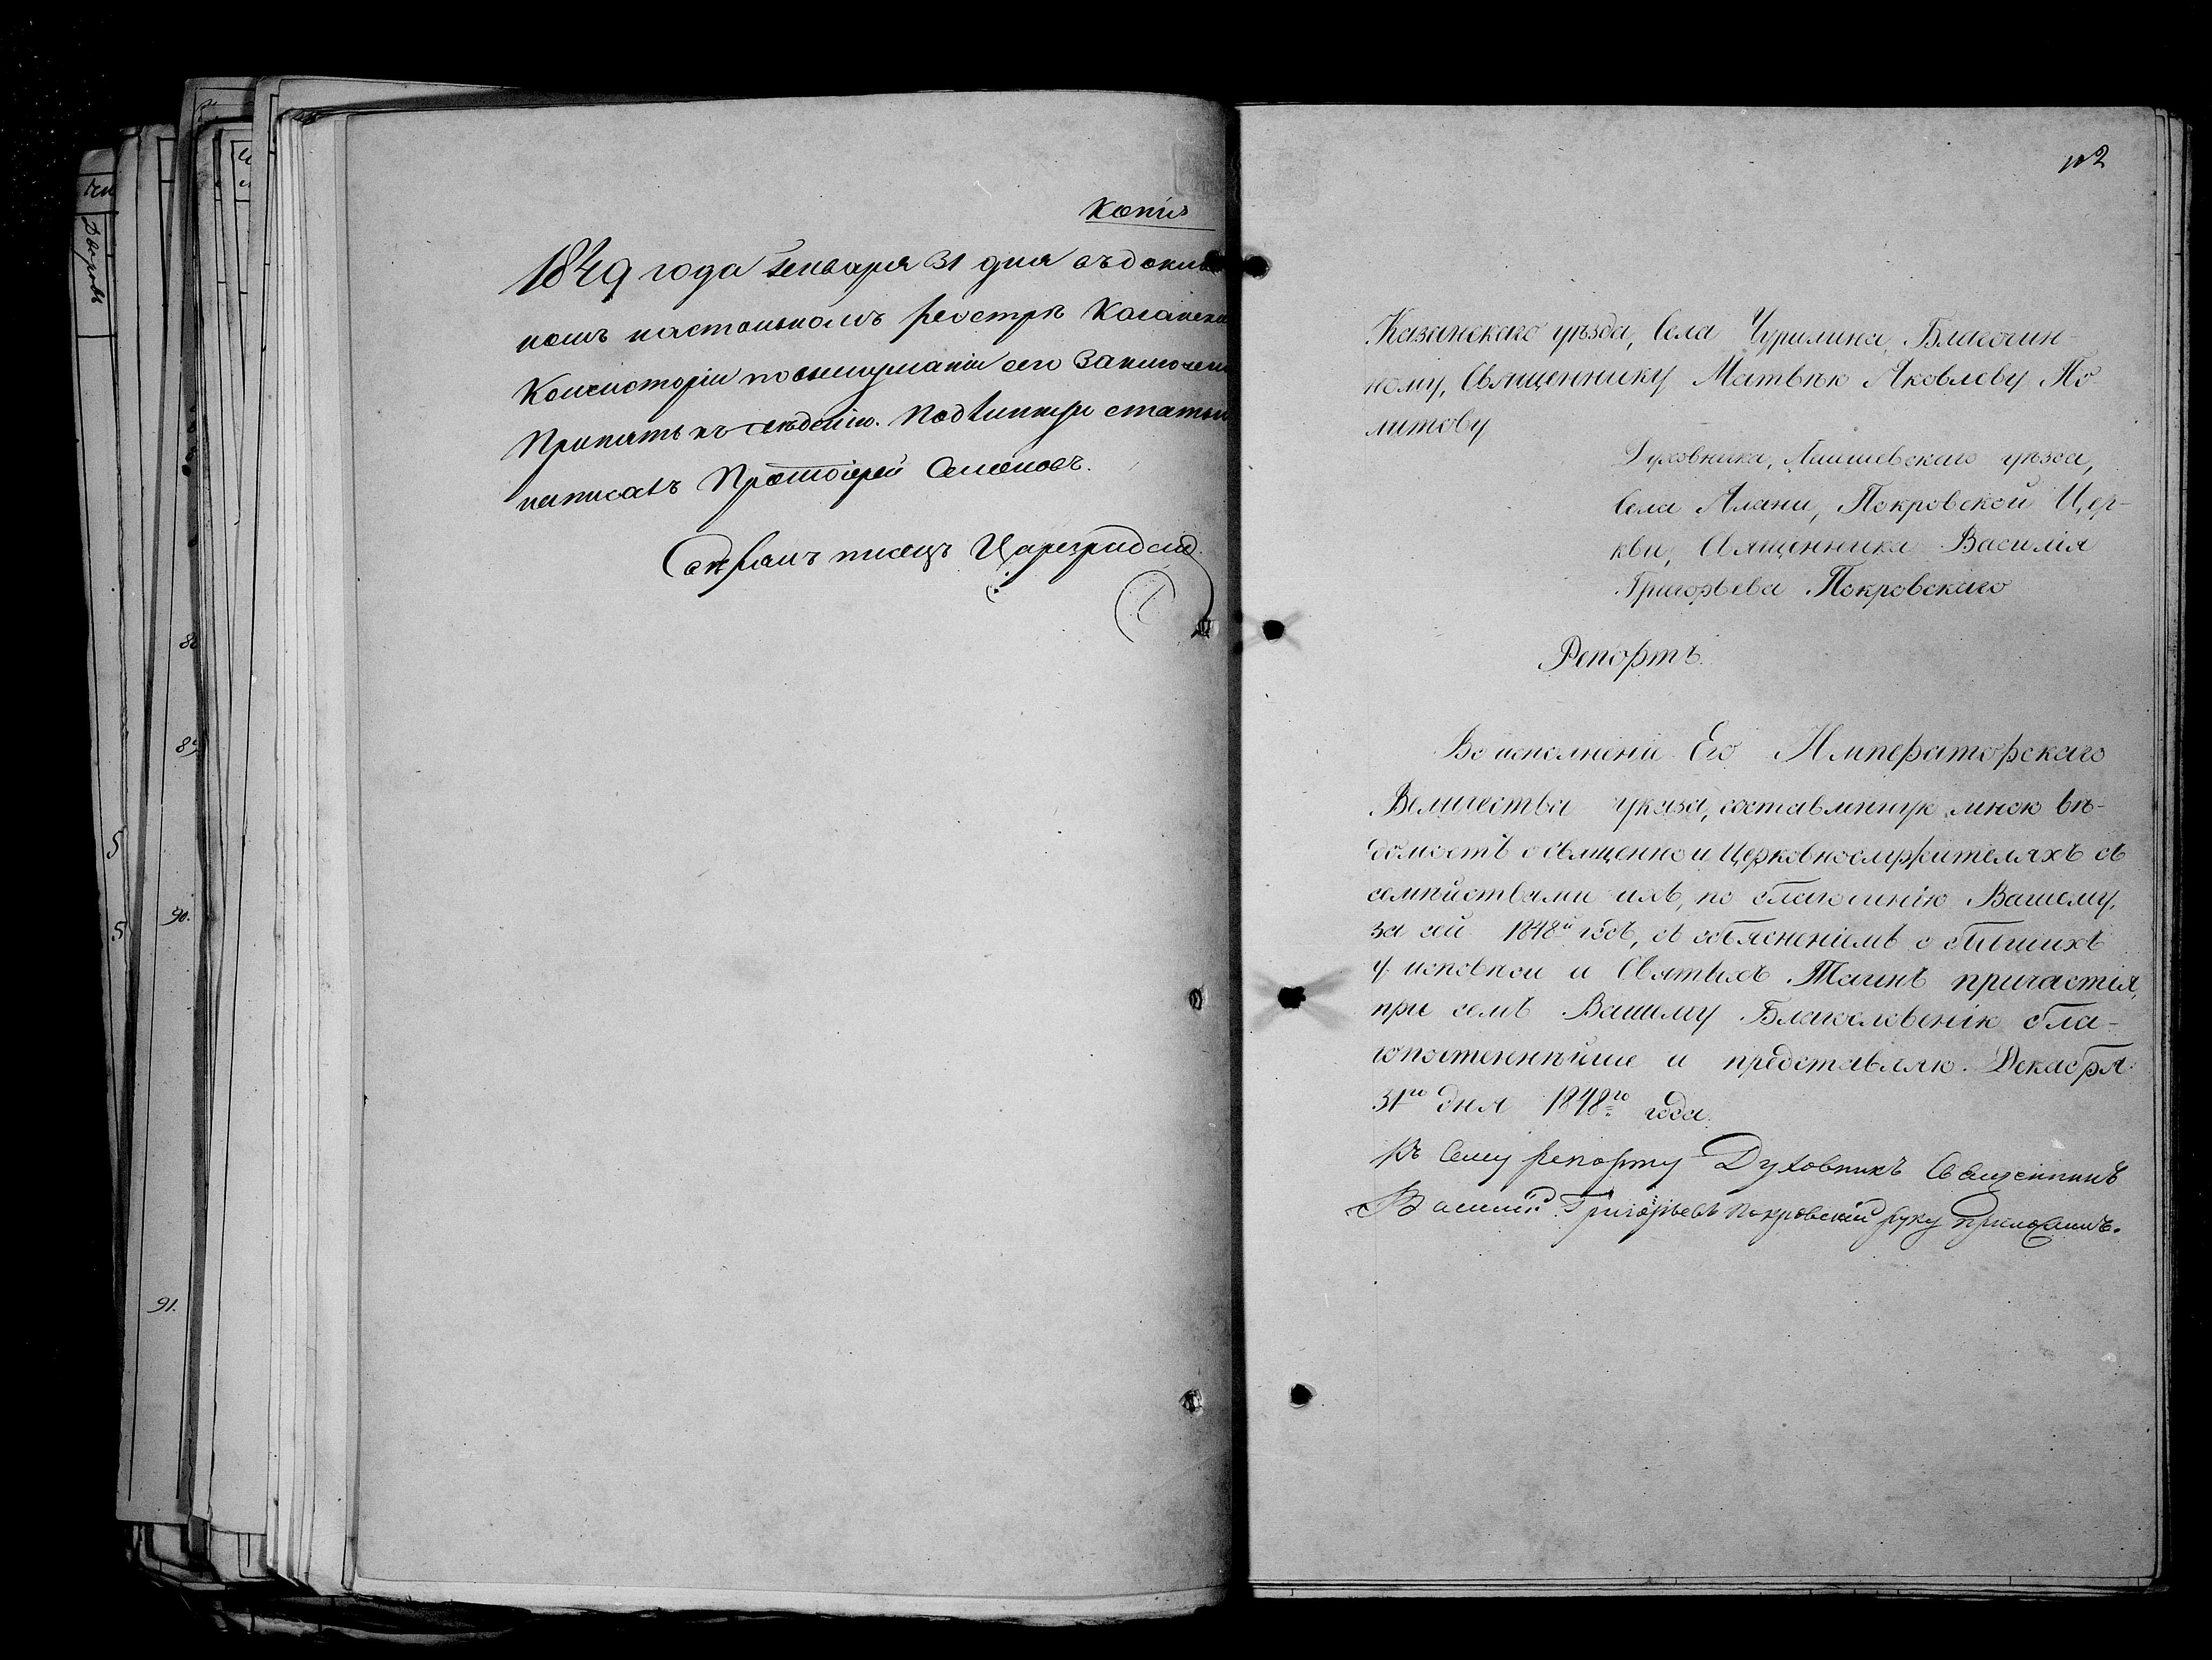 Копія
1849 года Генваря 31 дня въ доклад
номъ настольномъ реэстрѣ Казанской
Консисторіи по выслушаніи сего Заключено
Принять къ свѣденію. Подлинную статью
написалъ Протоіерей Семеновъ.
Свѣрялъ писецъ Цареградскій
112
Казанскаго уѣзда, Села Чурилина, Благочин-
ному, Священнику Матвѣю Яковлеву По
литову
Духовника, Лаишевскаго уѣзда,
Села Алани, Покровской Цер-
кви, Священника Василія
Григорьева Покровскаго
Репортъ.
Во исполненіе Его Императорскаго
Величества указа, составленную мною вѣ-
домость о священно и Церковнослужителяхъ съ
семѣйствами ихъ, по благочинію Вашему,
за сей 1848й годъ, съ объясненіемъ о бывшихъ
у исповѣси и Святыхъ Таинъ причастія,
при семъ Вашему Благословенію бла-
гопочтеннѣйше и представляю. Декабря
31го дня 1848го года.
Къ Сему репорту Духовникъ Священникъ
Василій Григорьевъ Покровскій руку приложилъ.
80
89
90.
91.
5
5